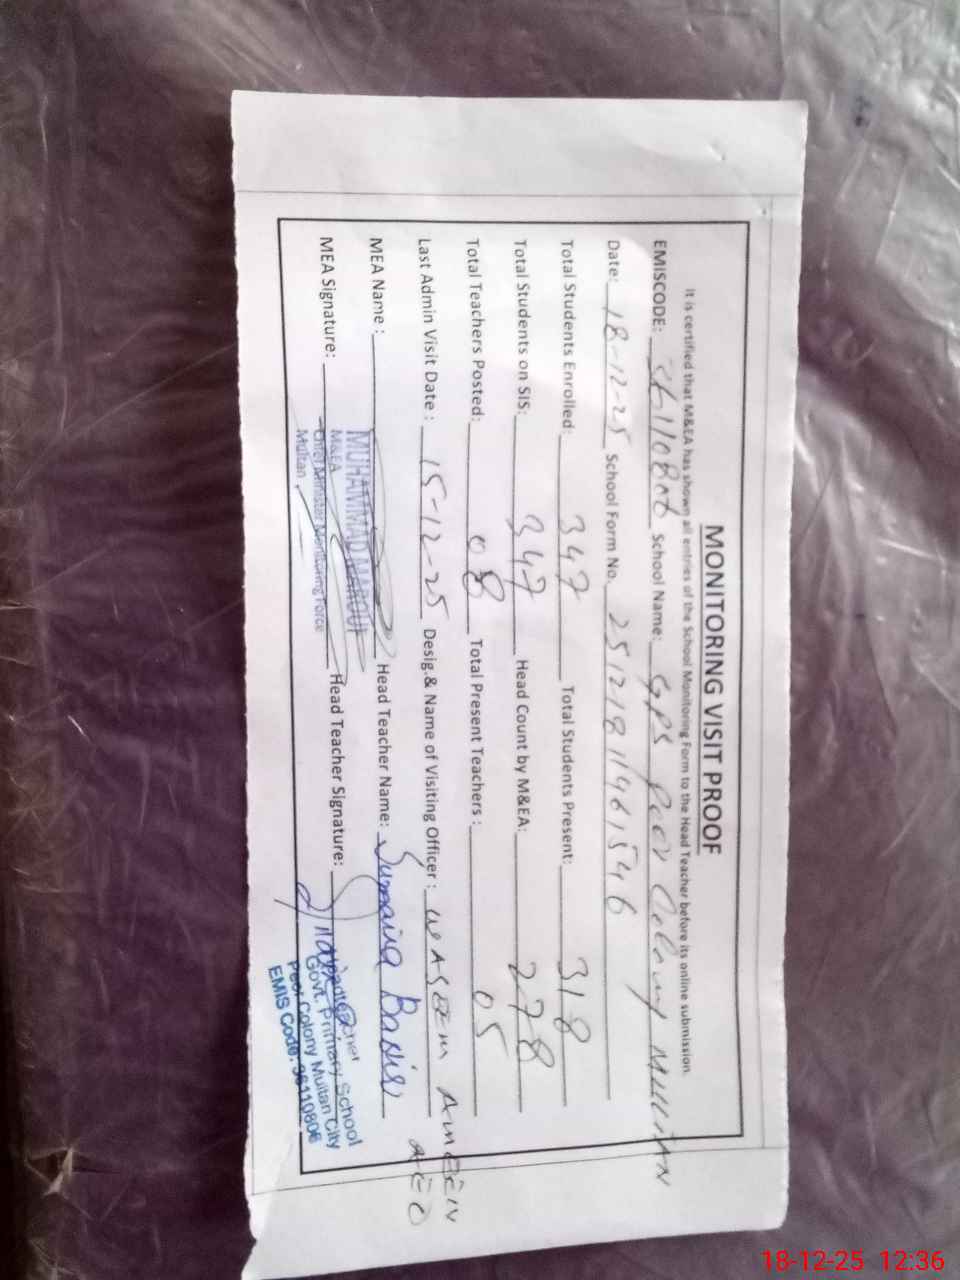 MONITORING VISIT PROOF
It is certified that M&EA has shown all entries of the School Monitoring Form to the Head Teacher before its online submission.
EMISCODE: 36110806 School Name: GPS peer Colony MULTAN
Date: 18-12-25 School Form No. 251218114615546
Total Students Enrolled: 347 Total Students Present: 318
Total Students on SIS: 347 Head Count by M&EA: 278
Total Teachers Posted: 08 Total Present Teachers : 05
Last Admin Visit Date : 15-12-25 Desig.& Name of Visiting Officer : WASEEM AMEEN
AEO
MEA Name : Head Teacher Name: Sumaira Bashir
MUHAMMAD MAROUF
MEA Signature: Head Teacher Signature:
M&EA
Chief Minister Monitoring Force
Multan
Headteacher
Govt. Primary School
Peer Colony Multan City
EMIS Code: 36110806
18-12-25 12:36